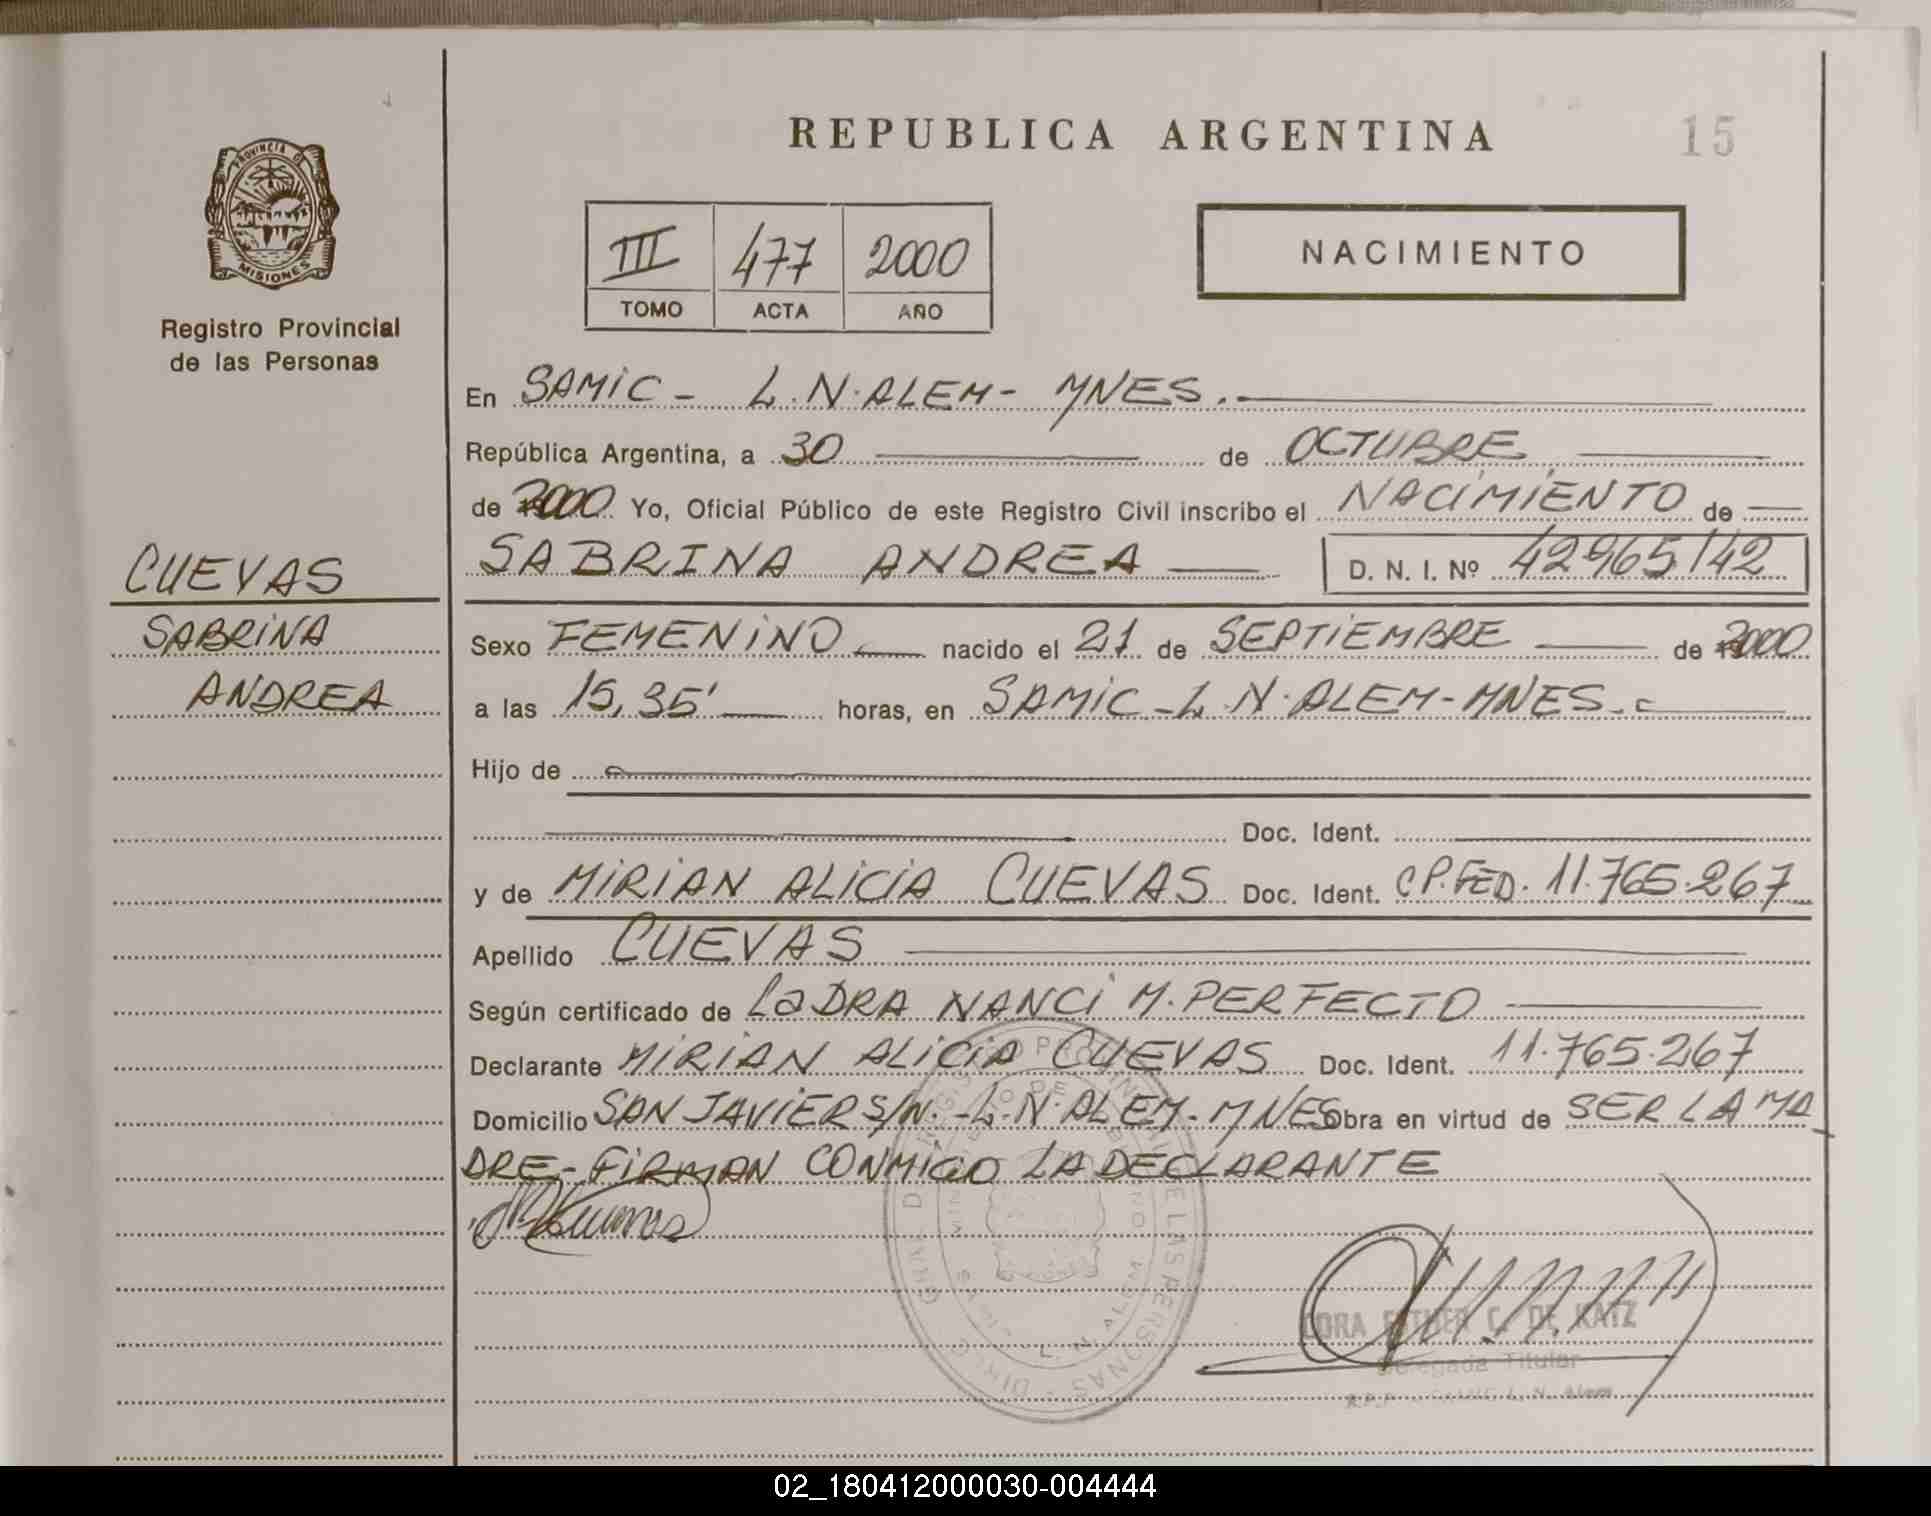 REPUBLICA ARGENTINA
15
PROVINCIA D
MISIONES
Registro Provincial
de las Personas
III 477 2000
TOMO ACTA AÑO
NACIMIENTO
En SAMIC - L.N.ALEM - MNES.
República Argentina, a 30 de OCTUBRE
de 2000 Yo, Oficial Público de este Registro Civil inscribo el NACIMIENTO de
CUEVAS
SABRINA
ANDREA
SABRINA ANDREA D. N. I. Nº 42965142
Sexo FEMENINO nacido el 21 de SEPTIEMBRE de 2000
a las 15,35' horas, en SAMIC - L.N.ALEM - MNES.
Hijo de
Doc. Ident.
y de MIRIAN ALICIA CUEVAS Doc. Ident. CP.FED. 11.765.267
Apellido CUEVAS
Según certificado de La DRA NANCI M. PERFECTO
Declarante MIRIAN ALICIA CUEVAS Doc. Ident. 11.765.267
Domicilio SAN JAVIER S/N. - L.N.ALEM - MNES Obra en virtud de SER LA MA
DRE - FIRMAN CONMIGO LA DECLARANTE
ESTHER C. DE KATZ
Delegada Titular
L. N. Alem
02_180412000030-004444